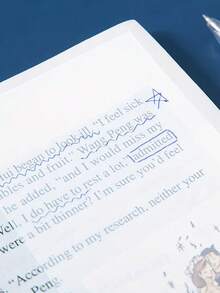 began to look ill. "I feel sick
bles and fruit." Wang Peng was
he added, "and I would miss my
Well. I do have to rest a lot," admitted
were a bit thinner? I'm sure you'd feel
s. "According to my research, neither your
Peng.